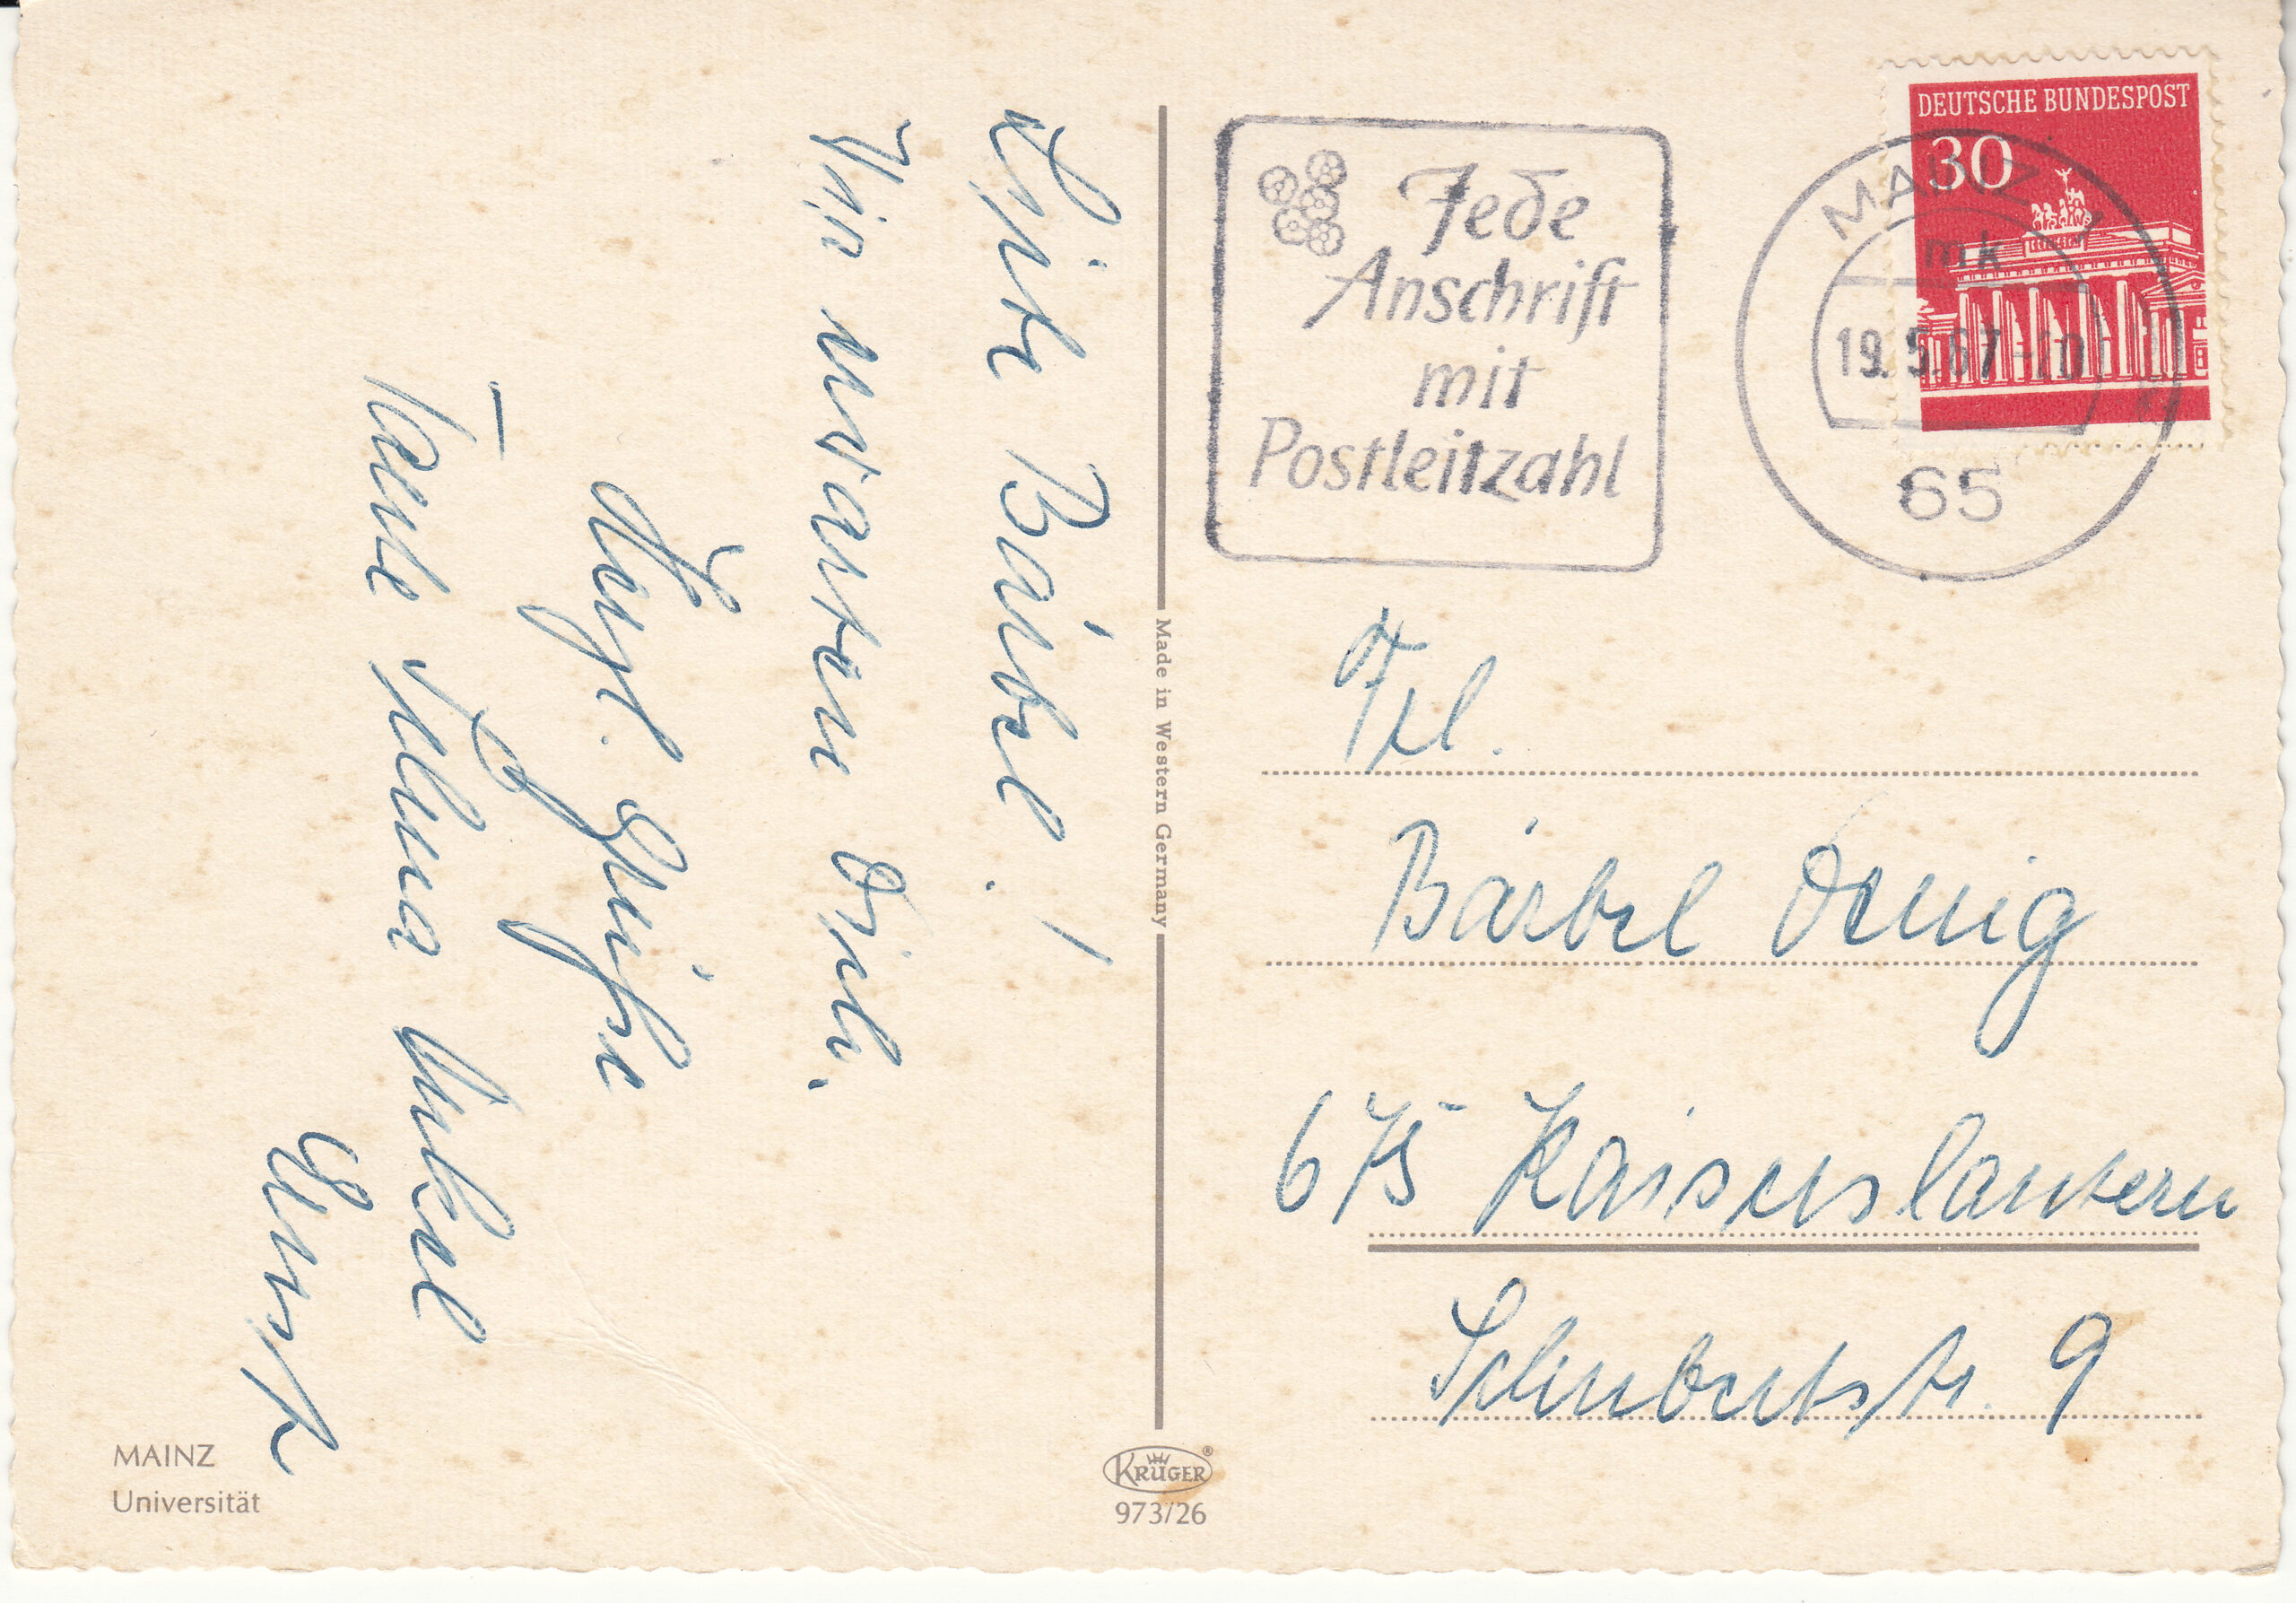 Liebe Bärbel!
Wir warten Dich.
Herzl. Grüße
Tante Selma Onkel
Ernst
MAINZ
Universität
Made in Western Germany
KRÜGER
973/26
Jede
Anschrift
mit
Postleitzahl
DEUTSCHE BUNDESPOST
30
MAINZ 1
mk
19.5.67-20
65
Frl.
Bärbel Denig
675 Kaiserslautern
Schubertstr. 9